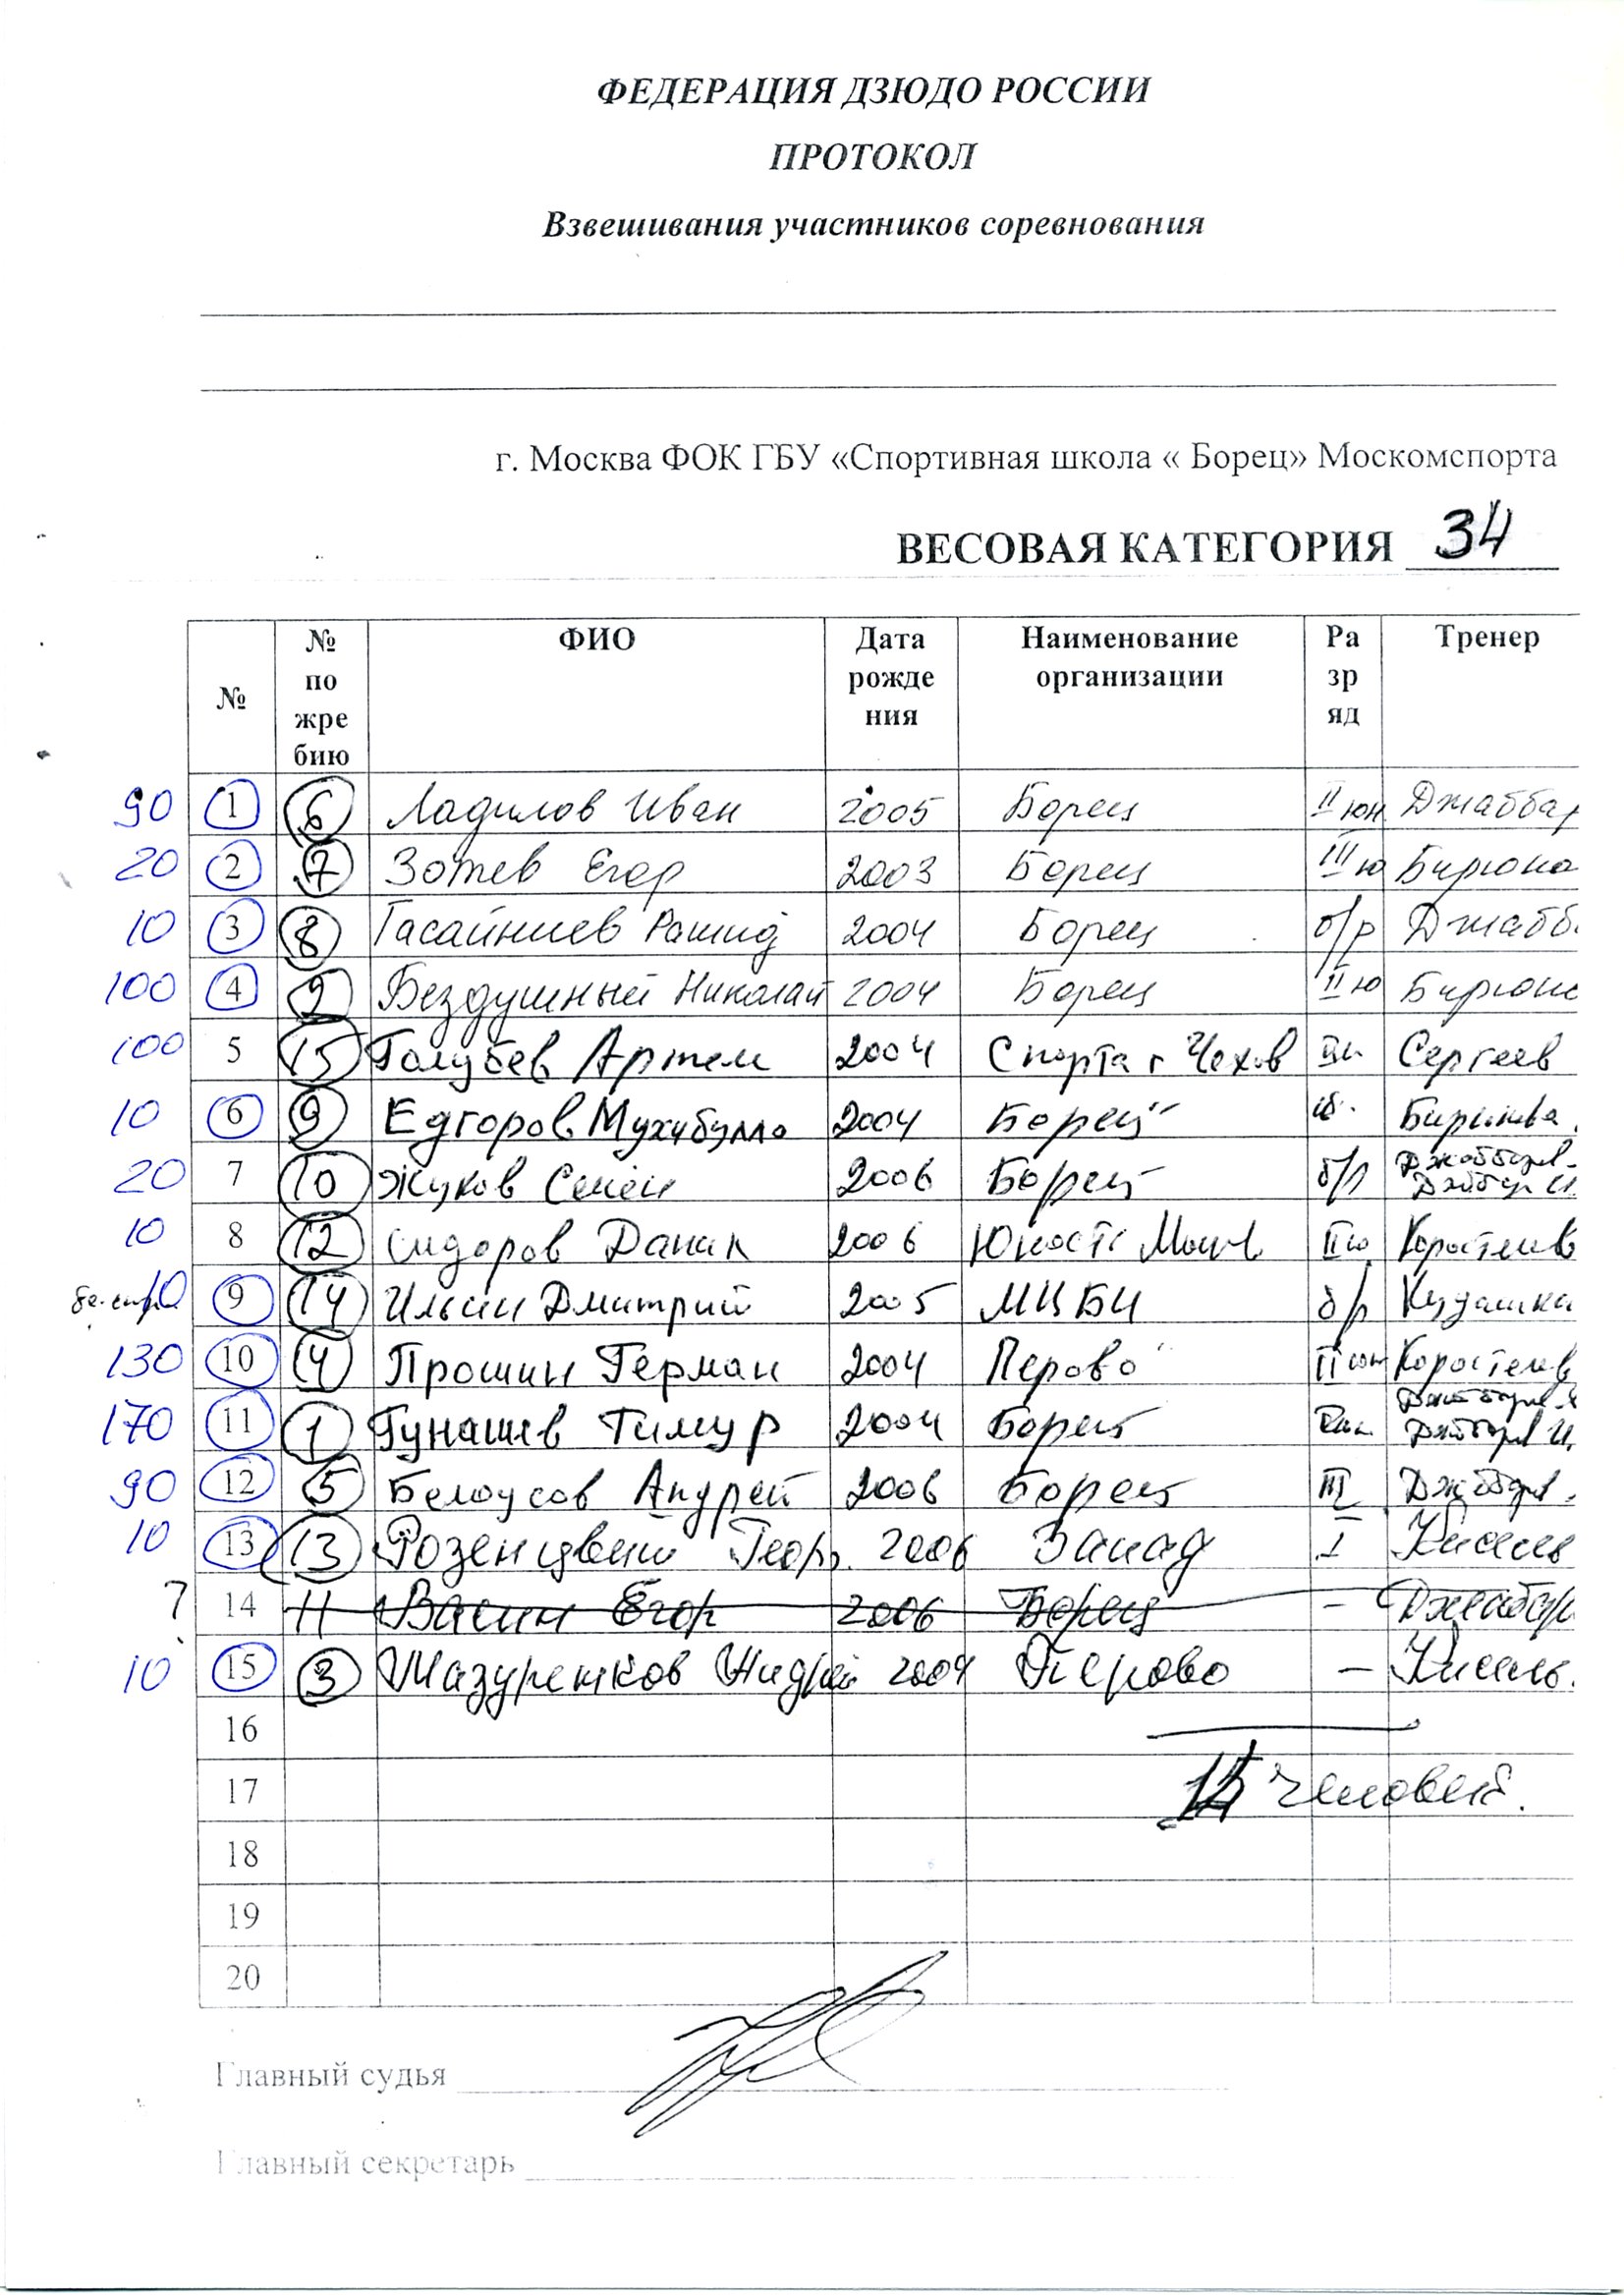 ФЕДЕРАЦИЯ ДЗЮДО РОССИИ
ПРОТОКОЛ
Взвешивания участников соревнования
г. Москва ФОК ГБУ «Спортивная школа « Борец» Москомспорта
ВЕСОВАЯ КАТЕГОРИЯ 34
№ № по жре бию ФИО Дата рожде ния Наименование организации Ра зр яд Тренер
90 1 6 Ладилов Иван 2005 Борец II юн Джаббар
20 2 7 Зотев Егор 2003 Борец III ю Бирюко
10 3 8 Рашид 2004 Борец б/р Джабб
100 4 2 Бездушный Николай 2004 Борец II ю Бирюко
100 5 15 Голубев Артем 2004 Спорта г Чехов Сергеев
10 6 9 Едгоров Мухибулло 2004 Борец
20 7 10 Жуков Семен 2006 Борец б/р
10 8 12 Сидоров Данил 2006 Юность Москв II ю Коростелев
10 9 14 Ильин Дмитрий 2005 МЦБИ б/р Кудашка
130 10 4 Прошин Герман 2004 Перово II юн Коростелев
170 11 1 Гунашев Тимур 2004 Борец
90 12 5 Белоусов Андрей 2006 Борец III
10 13 13 Розенцвейг Геор. 2006 Запад I Кисель
? 14 11 Васин Егор 2006 Борец - Джаббар
10 15 3 2004 Перово — Кисель.
16
17 человек.
18
19
20
Главный судья
Главный секретарь